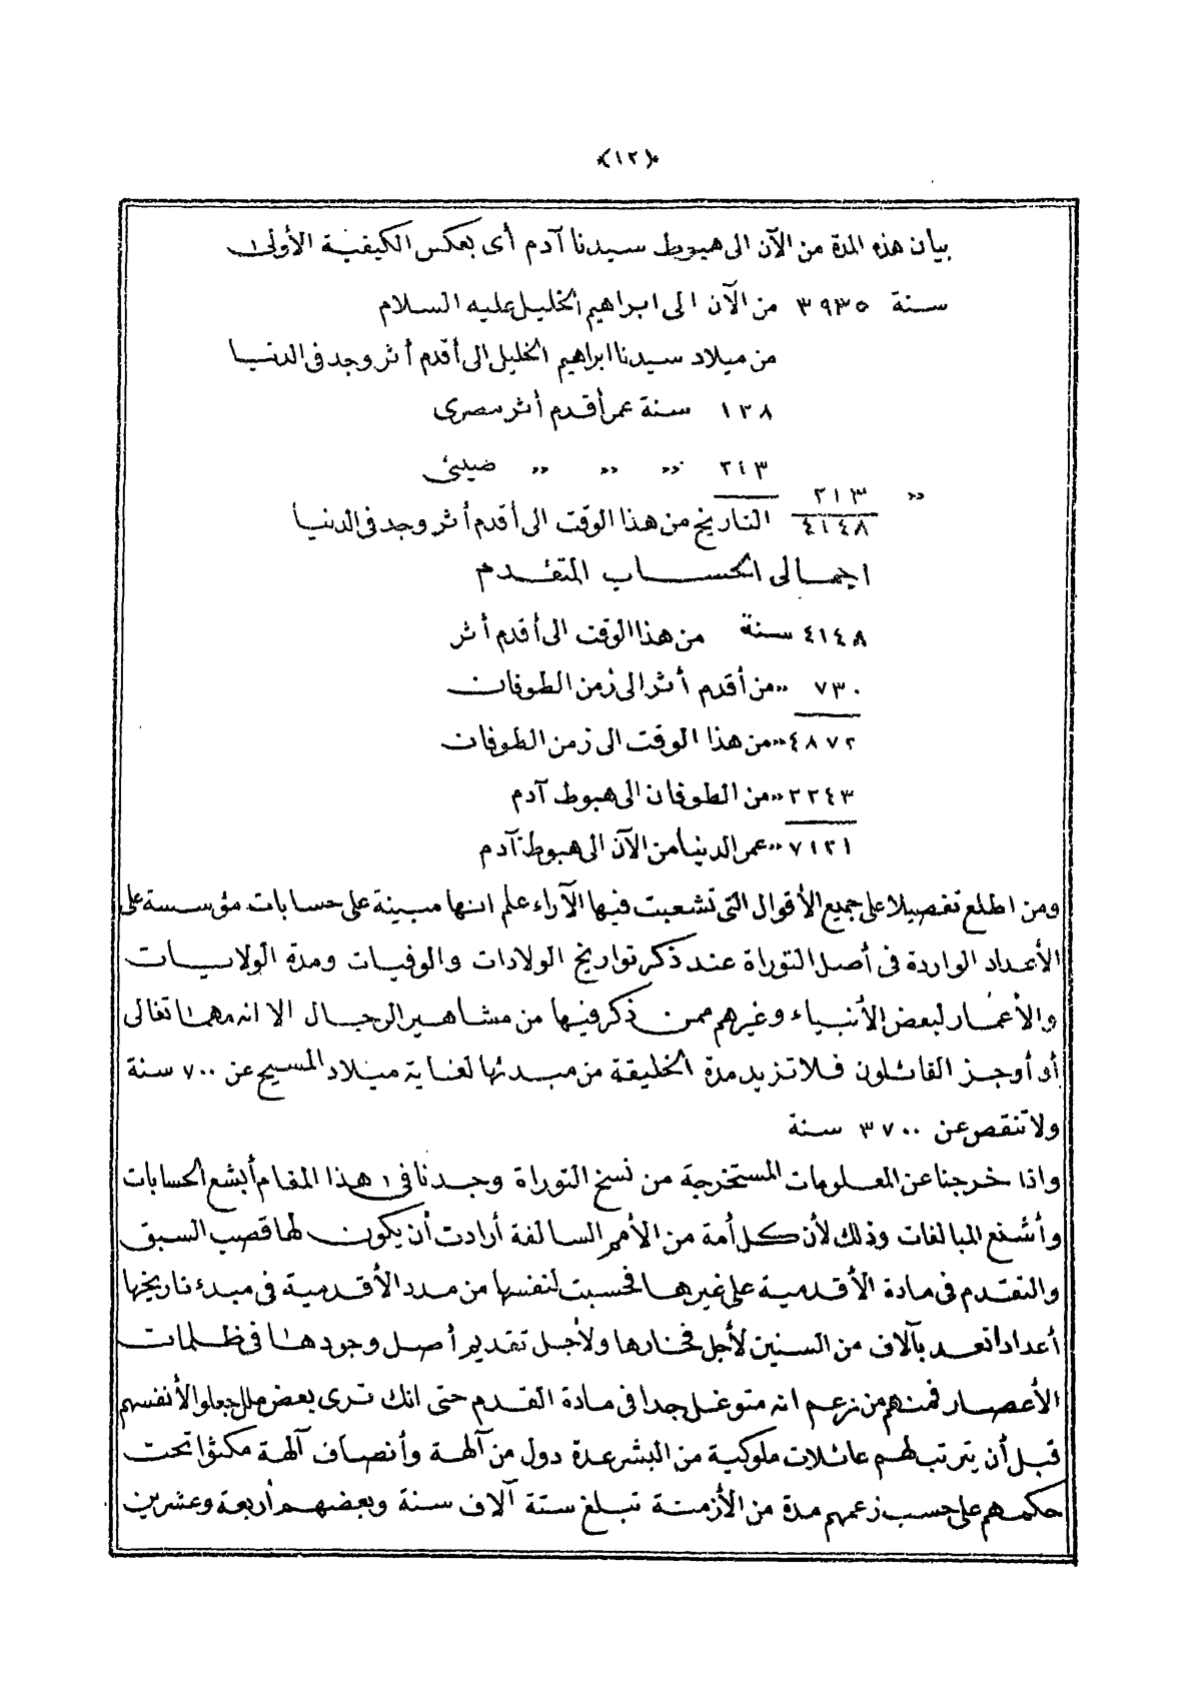 ﴿١٢﴾
بيان هذه المدة من الآن الى هبوط سيدنا آدم أى بعكس الكيفية الأولى
سنة ٣٩٣٥ من الآن الى ابراهيم الخليل عليه السلام
من ميلاد سيدنا ابراهيم الخليل الى أقدم أثر وجد فى الدنيا
١٣٨ سنة عمر أقدم أثر مصرى
٢١٣ » » » صينى
» ٢١٣
٤١٤٨ التاريخ من هذا الوقت الى أقدم أثر وجد فى الدنيا
اجمالى الحساب المتقدم
٤١٤٨ سنة من هذا الوقت الى أقدم أثر
٧٣٠ » من أقدم أثر الى زمن الطوفان
٤٨٧٢ » من هذا الوقت الى زمن الطوفان
٢٢٤٣ » من الطوفان الى هبوط آدم
٧١٢١ » عمر الدنيا من الآن الى هبوط آدم
ومن اطلع تفصيلا على جميع الأقوال التى تشعبت فيها الآراء علم انها مبينة على حسابات مؤسسة على
الأعداد الواردة فى أصل التوراة عند ذكر تواريخ الولادات والوفيات ومدة الولايات
والأعمار لبعض الأنبياء وغيرهم ممن ذكر فيها من مشاهير الرجال الا انه مهما تغالى
أو أوجز القائلون فلا تزيد مدة الخليقة من مبدئها لغاية ميلاد المسيح عن ٧٠٠٠ سنة
ولا تنقص عن ٣٧٠٠ سنة
واذا خرجنا عن المعلومات المستخرجة من نسخ التوراة وجدنا فى هذا المقام أبشع الحسابات
وأشنع المبالغات وذلك لأن كل أمة من الأمم السالفة أرادت أن يكون لها قصب السبق
والتقدم فى مادة الأقدمية على غيرها فحسبت لنفسها من مدد الأقدمية فى مبدء تاريخها
أعدادا تعد بآلاف من السنين لأجل فخارها ولأجل تقديم أصل وجودها فى ظلمات
الأعصار فمنهم من زعم انه متوغل جدا فى مادة القدم حتى انك ترى بعض ملل جعلوا لأنفسهم
قبل أن يترتب لهم عائلات ملوكية من البشر عدة دول من آلهة وأنصاف آلهة مكثوا تحت
حكمهم على حسب زعمهم مدة من الأزمنة تبلغ ستة آلاف سنة وبعضهم أربعة وعشرين